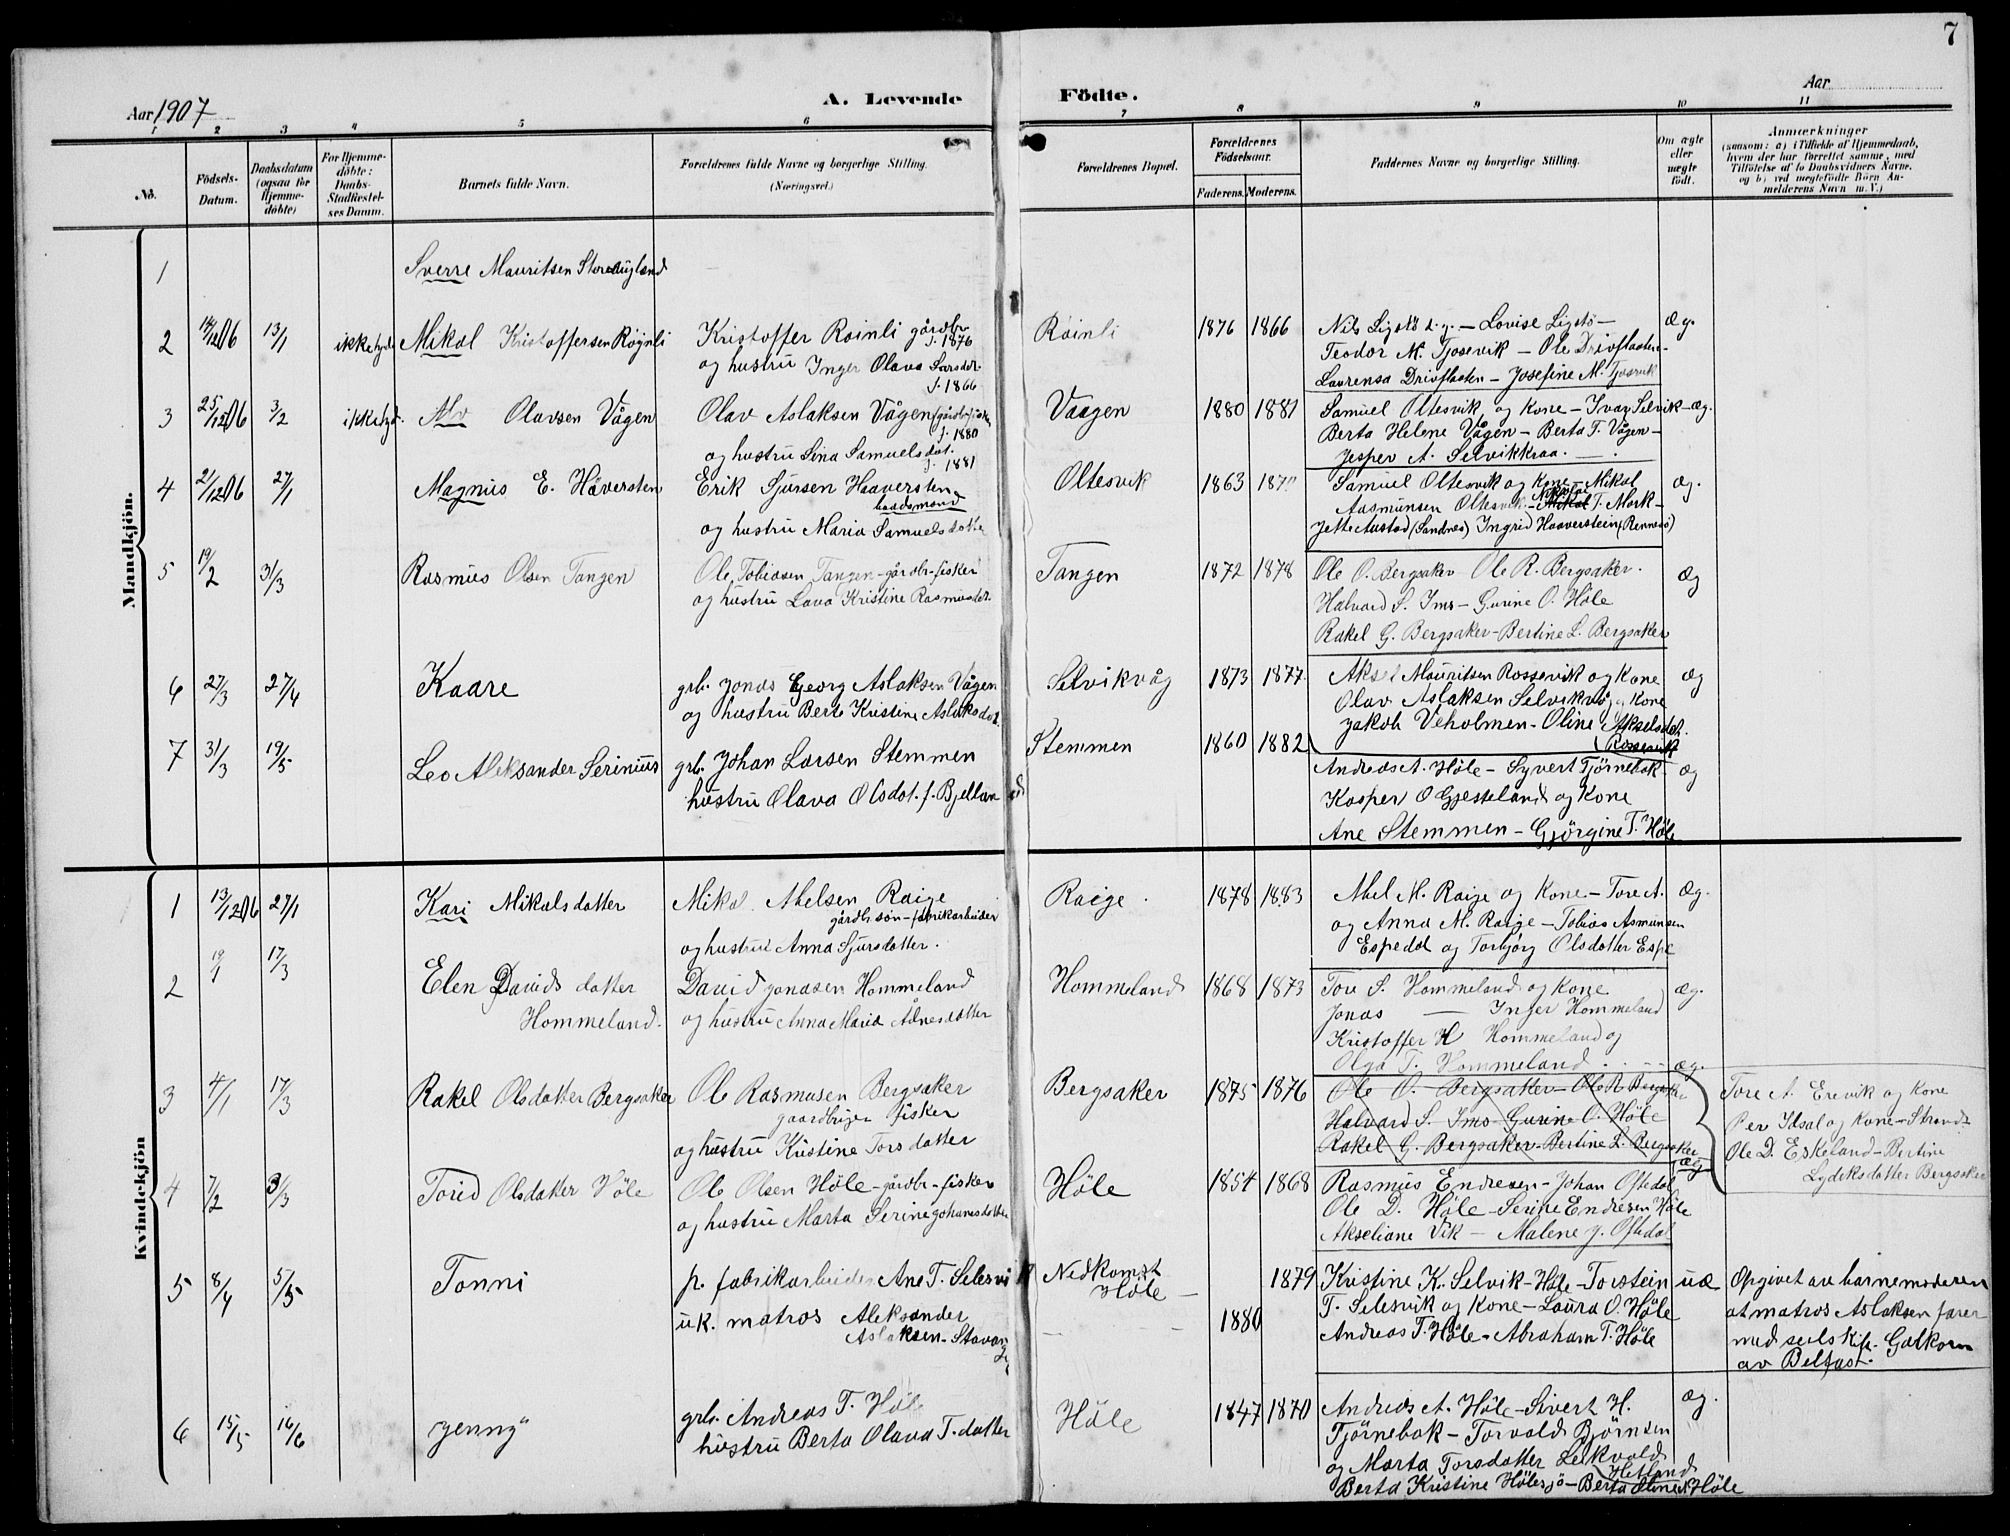 7
Aar 1907
A. Levende
Födte.
Aar
1 2 3 4 5 6 7 8 9 10 11
No.
Födsels-Datum.
Daabsdatum (ogsaa for Hjemme-döbte)
For Hjemme-döbte: Daabs-Stadfæstel-ses Datum.
Barnets fulde Navn.
Forældrenes fulde Navne og borgerlige Stilling.
(Næringsvei.)
Forældrenes Bopæl.
Forældrenes Födselsaar.
Faderens. Moderens.
Faddernes Navne og borgerlige Stilling.
Om ægte eller uægte födt.
Anmærkninger
(saasom: a) i Tilfælde af Hjemmedaab, hvem der har forrettet samme, med Tilföielse af to Daabsvidners Navne, og b) ved uægtefödte Börn An-melderens Navn m. V.)
Mandkjön.
1 Sverre Mauritsen Storaugland
2 14/12 06 13/1 ikke Mikal Kristoffersen Røgnli
Kristoffer Røinli gårdbr. f. 1876
og hustru Inger Olava Larsdtr. f. 1866
Røinli 1876 1866
Nils Ligstö — Lovise Ligstö —
Teodor M. Tjosevik — Ole Drivflaaten —
Laurensa Drivflaaten — Josefine M. Tjosvik
æg.
3 25/12 06 3/2 Alv Olavsen Vågen
Olav Aslaksen Vågen (gårdbr. fisker f. 1880
og hustru Sina Samuelsdot. f. 1881
Vaagen 1880 1881
Samuel Oltesvik og Kone — Ivar Selvik —
Berta Helene Vågen — Berta T. Vågen —
Jesper A. Selvikkraa. —
æg.
4 21/12 06 27/1 Magnus E. Håversten
Erik Sjursen Haaversten
baadsmand
og hustru Maria Samuelsdotter
Oltesvik 1863
Samuel Oltesvik og Kone — Mikal
Aasmunsen Oltesvik — Nikolai T. Mark —
Jette Austad (Sandnes) Ingrid Haaverstein (Rennesö)
æg.
5 19/2 31/3 Rasmus Olsen Tangen
Ole Tobiasen Tangen — gårdbr — fisker
og hustru Lava Kristine Rasmusdtr.
Tangen 1872 1878
Ole O. Bergsaker — Ole R. Bergsaker.
Halvard S. Ims — Gurine O. Höle
Rakel G. Bergsaker — Bertine L. Bergsaker
Æg
6 27/3 27/4 Kaare
grb. Jonas Georg Aslaksen Vågen
og hustru Berte Kristine Aslaksdot.
Selvikvåg 1873 1877
Aksel Mauritsen Rossevik og Kone
Olav Aslaksen Selvikvåg og Kone
Jakob Veholmen — Oline Akselsdot.
(Rossevik
æg
7 31/3 19/5 Leo Aleksander Serinius
grb. Johan Larsen Stemmen
hustru Olava Olsdot. f. Bjelland
Stemmen 1860 1882
Andreas A. Höle — Syvert Tjörnebak —
Kasper O Gjesteland og Kone
Ane Stemmen — Gjörgine T. Höle
æg
Kvindekjön
1 13/12 06 27/1 Kari Mikalsdatter
Mikal Abelsen Raige
gårdb. sön — fabrikarbeider
og hustru Anna Sjursdatter.
Raige. 1878 1883
Abel M. Raige og Kone — Tore A.
og Anna M. Raige — Tobias Asmunsen
Espedal og Torbjörg Olsdatter Espe
æg.
2 19/1 17/3 Elen Davidsdatter
Hommeland.
David Jonasen Hommeland
og hustru Anna Maria Ådnesdatter
Hommeland 1868 1873
Tore S. Hommeland og Kone
Jonas — Inger Hommeland
Kristoffer H Hommeland og
Olga T. Hommeland
æg.
3 4/1 17/3 Rakel Olsdatter Bergsaker
Ole Rasmusen Bergsaker
gaardbruger fisker
og hustru Kristine Torsdatter
Bergsaker 1875 1876
Ole O. Bergsaker — Ole R. Bergsaker
Halvard S. Ims — Gurine O. Höle
Rakel G. Bergsaker — Bertine L. Bergsaker
æg.
Tore A. Erevik og Kone
Per Idsal og Kone — Strand
Ole D. Eskeland — Bertine
Lydeksdatter Bergsaker
4 7/2 3/3 Torid Olsdatter Höle
Ole Olsen Höle — gårdbr — fisker
og hustru Marta Serine Johanesdatter
Höle 1854 1868
Rasmus Endresen — Johan Oftedal
Ole D. Höle — Serine Endresen Höle
Akseliane Vik — Malene J. Oftedal
æg
5 8/4 5/5 Tonni
p. fabrikarbeider Ane T. Selesvik
uk. matros Aleksander
Aslaksen — Stavanger
Nedkomst
Höle —
1880 1879
Kristine K. Selvik — Höle — Torstein
T. Selesvik og Kone — Laura O. Höle
Andreas T. Höle — Abraham T. Höle
uæ
Opgivet av barnemoderen
at matros Aslaksen farer
med seilskib. Galkorn
av Belfast.
6 15/5 16/6 Jenny
grb. Andreas T. Höle
hustru Berta Olava T. datter
Höle 1847 1870
Andreas A. Höle — Sivert H.
Tjörnebak — Torvald Björnsen
og Marta Torsdatter Leikvold
(Hetland
Berta Kristine Hölesjö — Berta Oline Höle
æg.